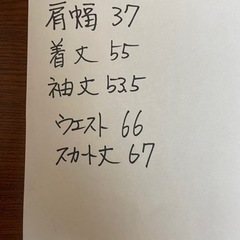 肩幅 37
着丈 55
袖丈 53.5
ウエスト 66
スカート丈 67